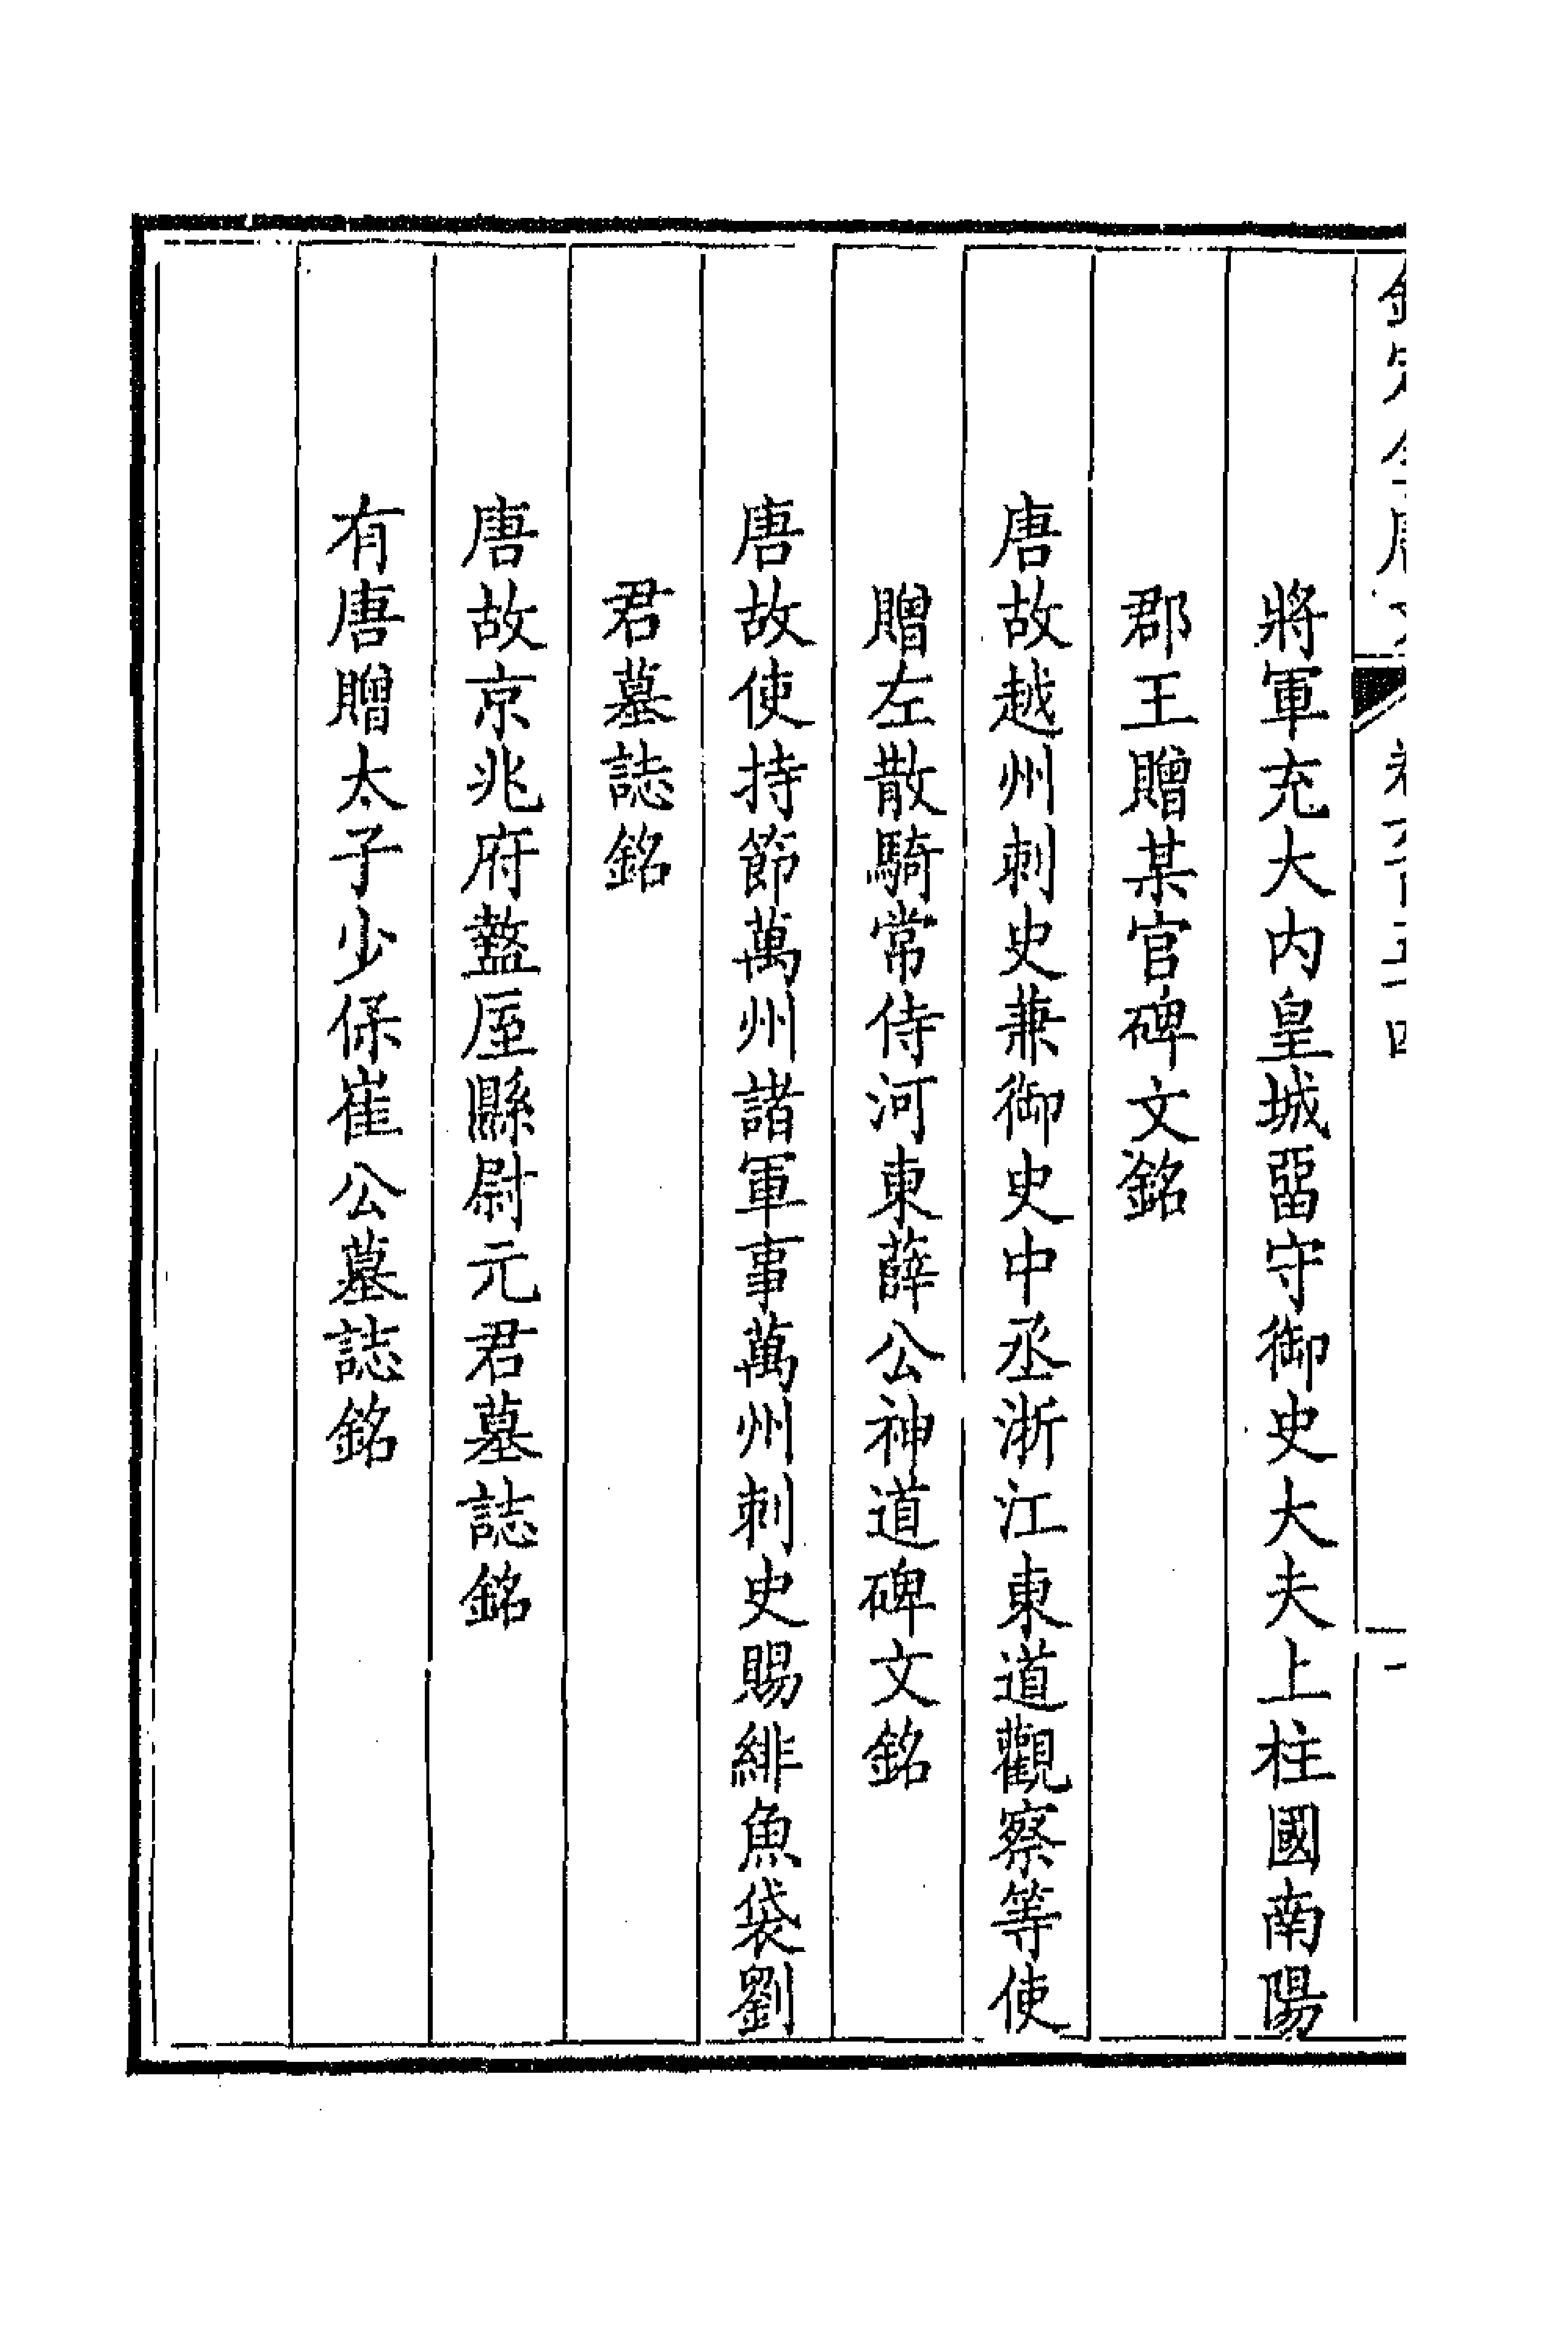 將軍充大内皇城畱守御史大夫上柱國南陽
郡王贈某官碑文銘
唐故越州刺史兼御史中丞浙江東道觀察等使
贈左散騎常侍河東薛公神道碑文銘
唐故使持節萬州諸軍事萬州刺史賜緋魚袋劉
君墓誌銘
唐故京兆府盩厔縣尉元君墓誌銘
有唐贈太子少保崔公墓誌銘